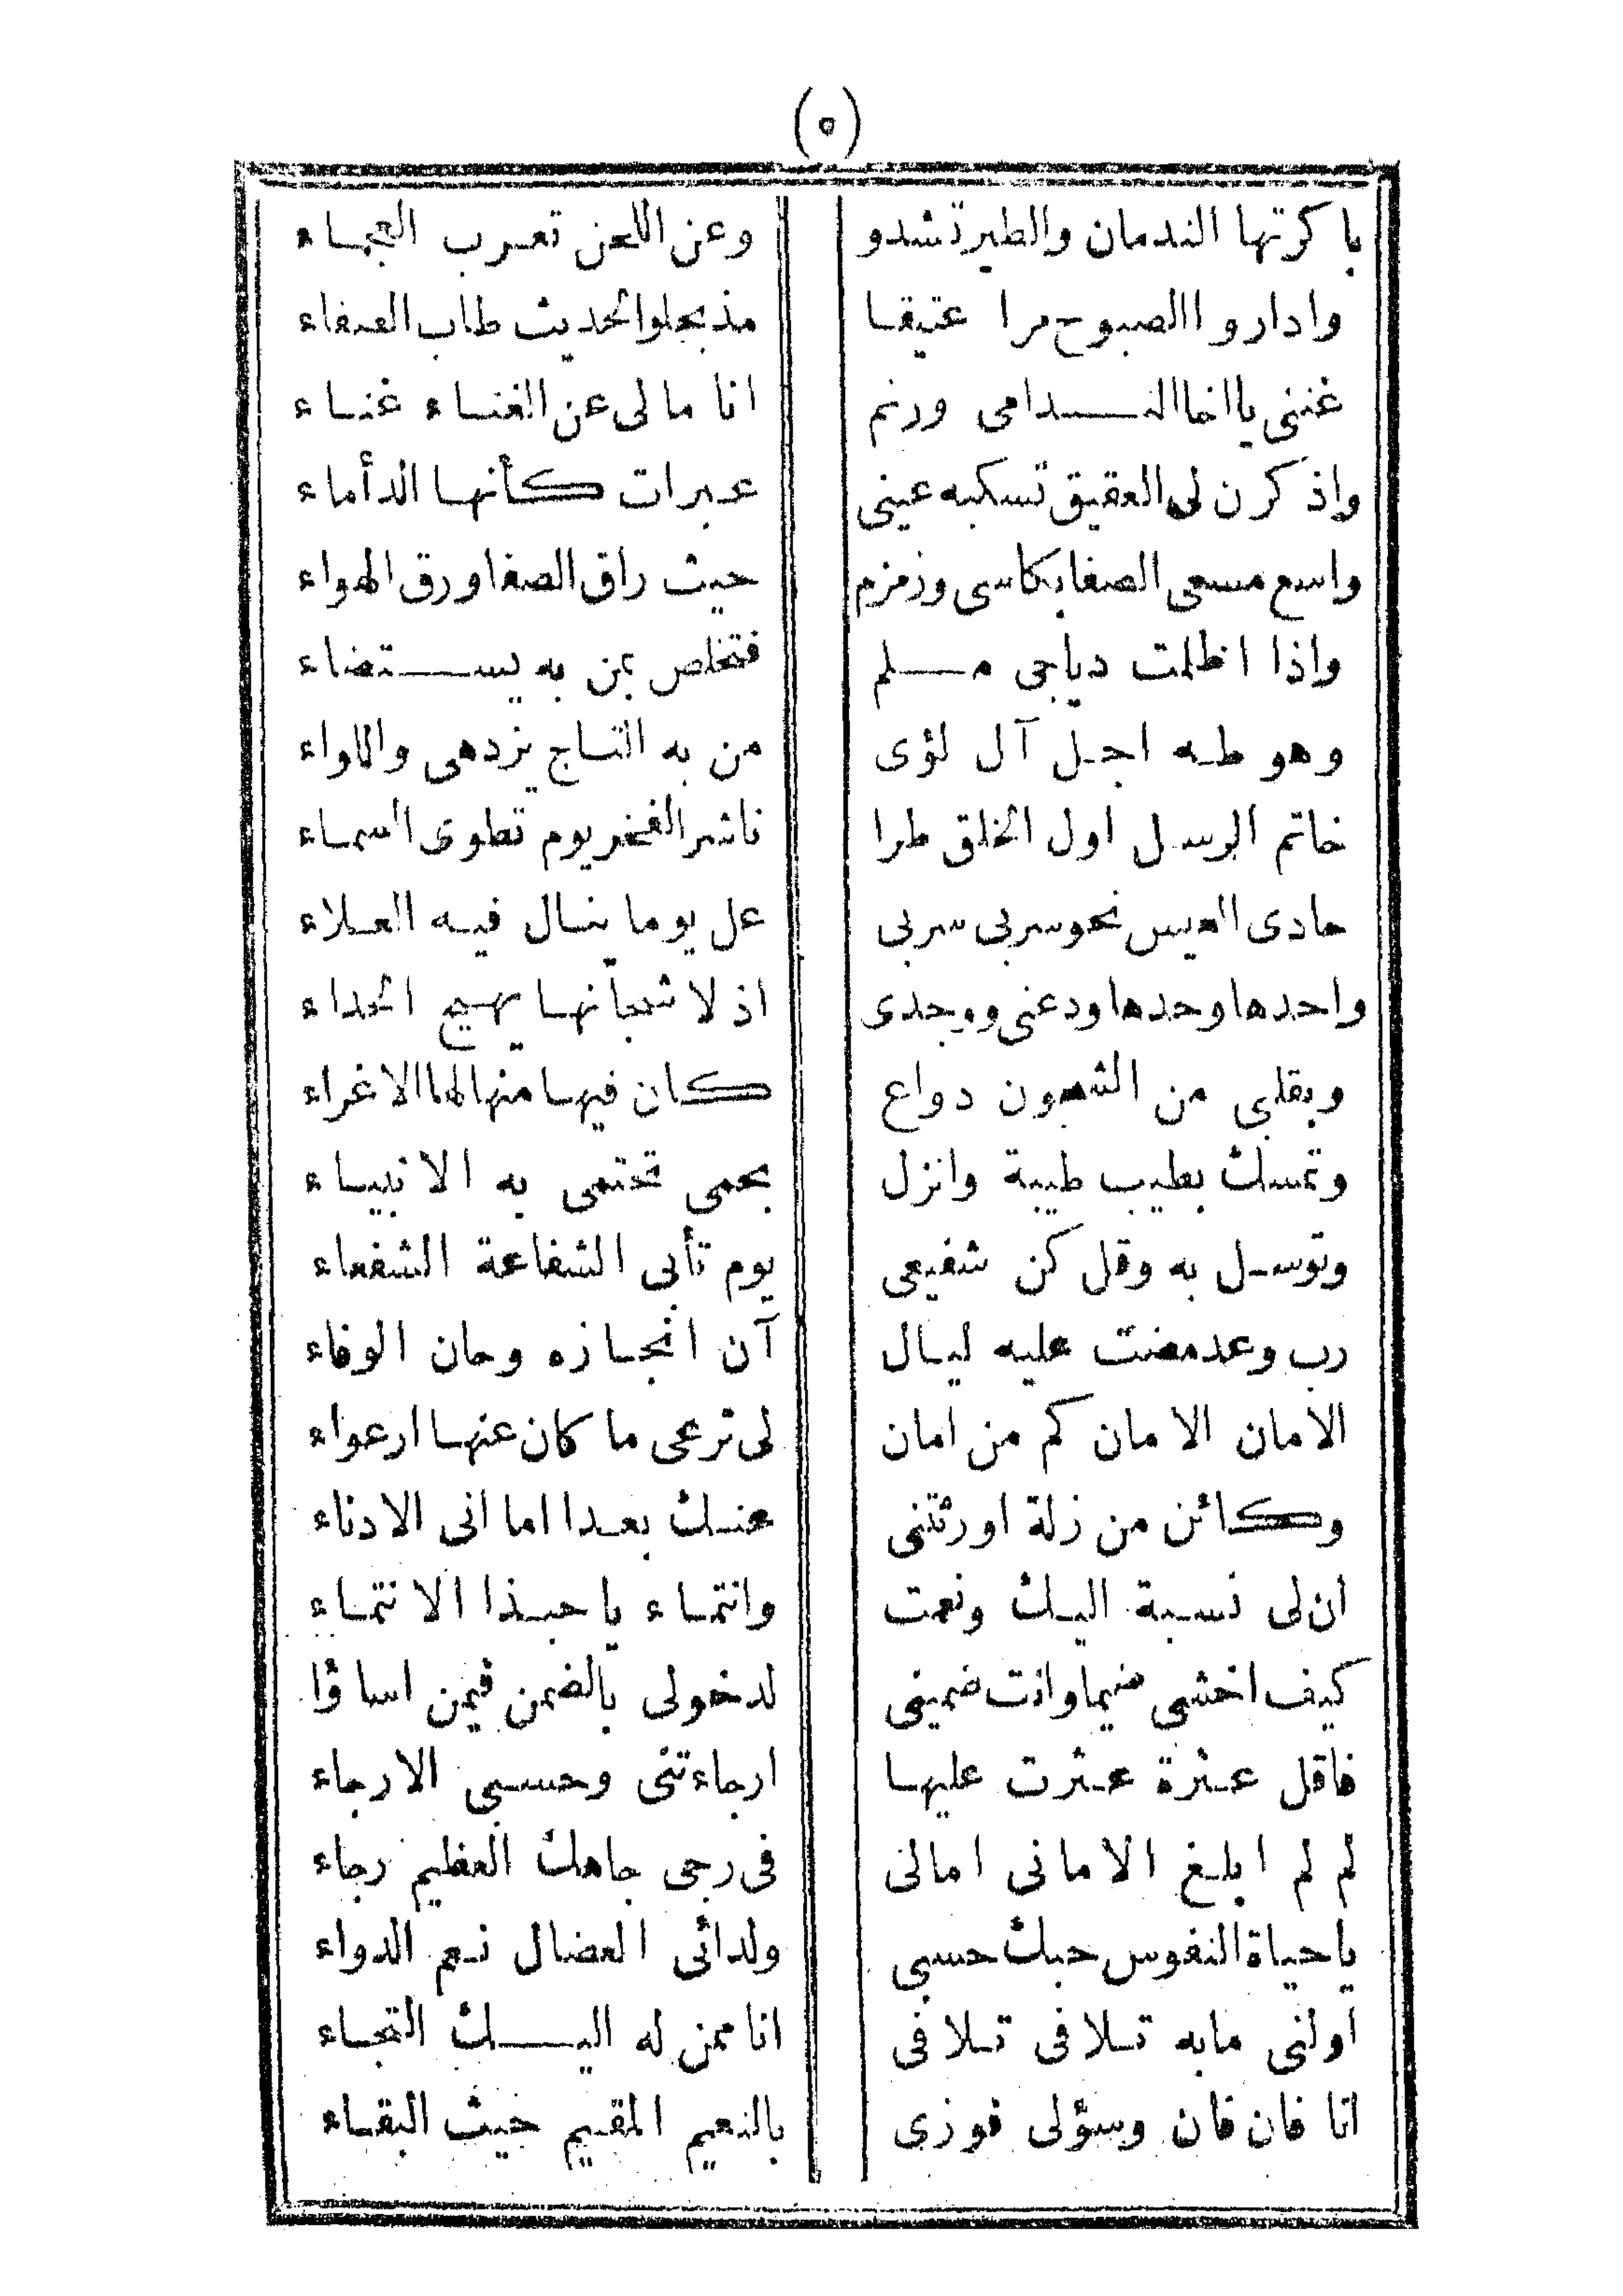 (٥)
باكرتها الندمان والطير تشدو وعن اللحن تعرب العجماء
واداروا الصبوح مرا عتيقا مذ بحلو الحديث طاب الصفاء
غننى يا اخا الندامى ورنم انا مالى عن الغناء غناء
واذكرن لى العقيق تسكبه عينى عبرات كأنها الدأماء
واسع مسعى الصفا بكاسى وزمزم حيث راق الصفا ورق الهواء
واذا اظلمت دياجى ملم فتخلص بمن به يستضاء
وهو طه اجل آل لؤى من به التاج يزدهى واللواء
خاتم الرسل اول الخلق طرا ناشر الفخر يوم تطوى السماء
حادى العيس نحو سربى سر بى عل يوما ينال فيه العلاء
واحدها وحدها ودعنى ووجدى اذ لاشجانها يهيج الحداء
وبقلبى من الشجون دواع كان فيها منها لها الاغراء
وتمسك بطيب طيبة وانزل بحمى تحتمى به الانبياء
وتوسل به وقل كن شفيعى يوم تأبى الشفاعة الشفعاء
رب وعد مضت عليه ليال آن انجازه وحان الوفاء
الامان الامان كم من امان لى ترعى ما كان عنها ارعواء
وكائن من زلة اورثتنى عنك بعدا اما انى الادناء
ان لى نسبة اليك ونعمت وانتماء يا حبذا الانتماء
كيف اخشى ضيما وانت ضمينى لدخولى بالضمن فيمن اساؤا
فاقل عثرة عثرت عليها ارجاءتنى وحسبى الارجاء
لم لم ابلغ الامانى امالى فى رجى جاهك العظيم رجاء
يا حياة النفوس حبك حسبى ولدائى العضال نعم الدواء
اولنى مابه تلافى تلافى انا ممن له اليك التجاء
انا فان فان وسؤلى فوزى بالنعيم المقيم حيث البقاء